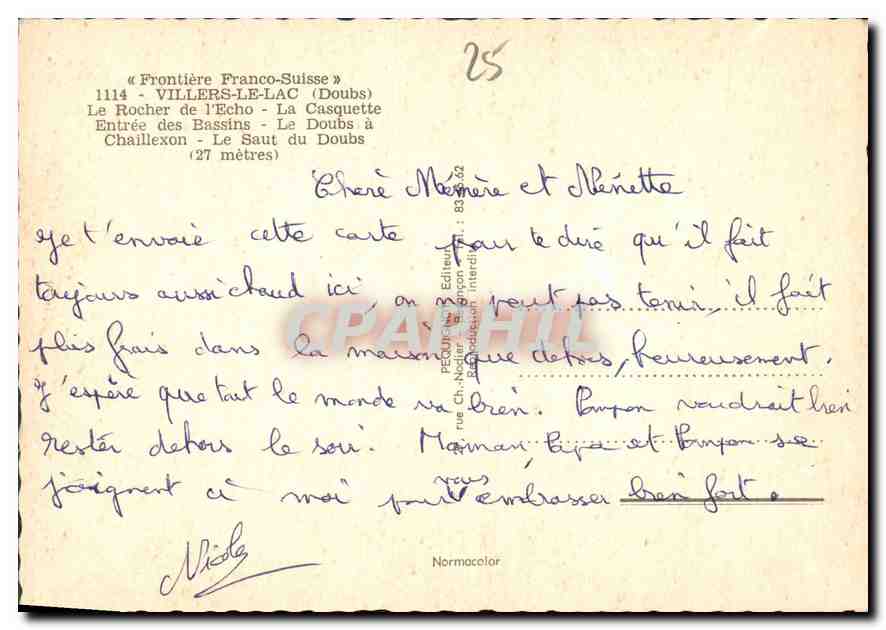 25
« Frontière Franco-Suisse »
1114 - VILLERS-LE-LAC (Doubs)
Le Rocher de l'Echo - La Casquette
Entrée des Bassins - Le Doubs à
Chaillexon - Le Saut du Doubs
(27 mètres)
Cherè Mémère et Nénette
je t'envoie cette carte pour te dire qu'il fait
toujours aussi chaud ici, on ne peut pas tenir, il fait
plus frais dans la maison que dehors, heureusement.
J'espère que tout le monde va bien. Pompon voudrait bien
rester dehors le soir. Maman Papa et Pompon se
joignent à moi pour vous embrasser bien fort.
Nicole
PEQUIGNOT Editeur
rue Ch.-Nodier
Reproduction interdite
Normacolor
CPAPHIL